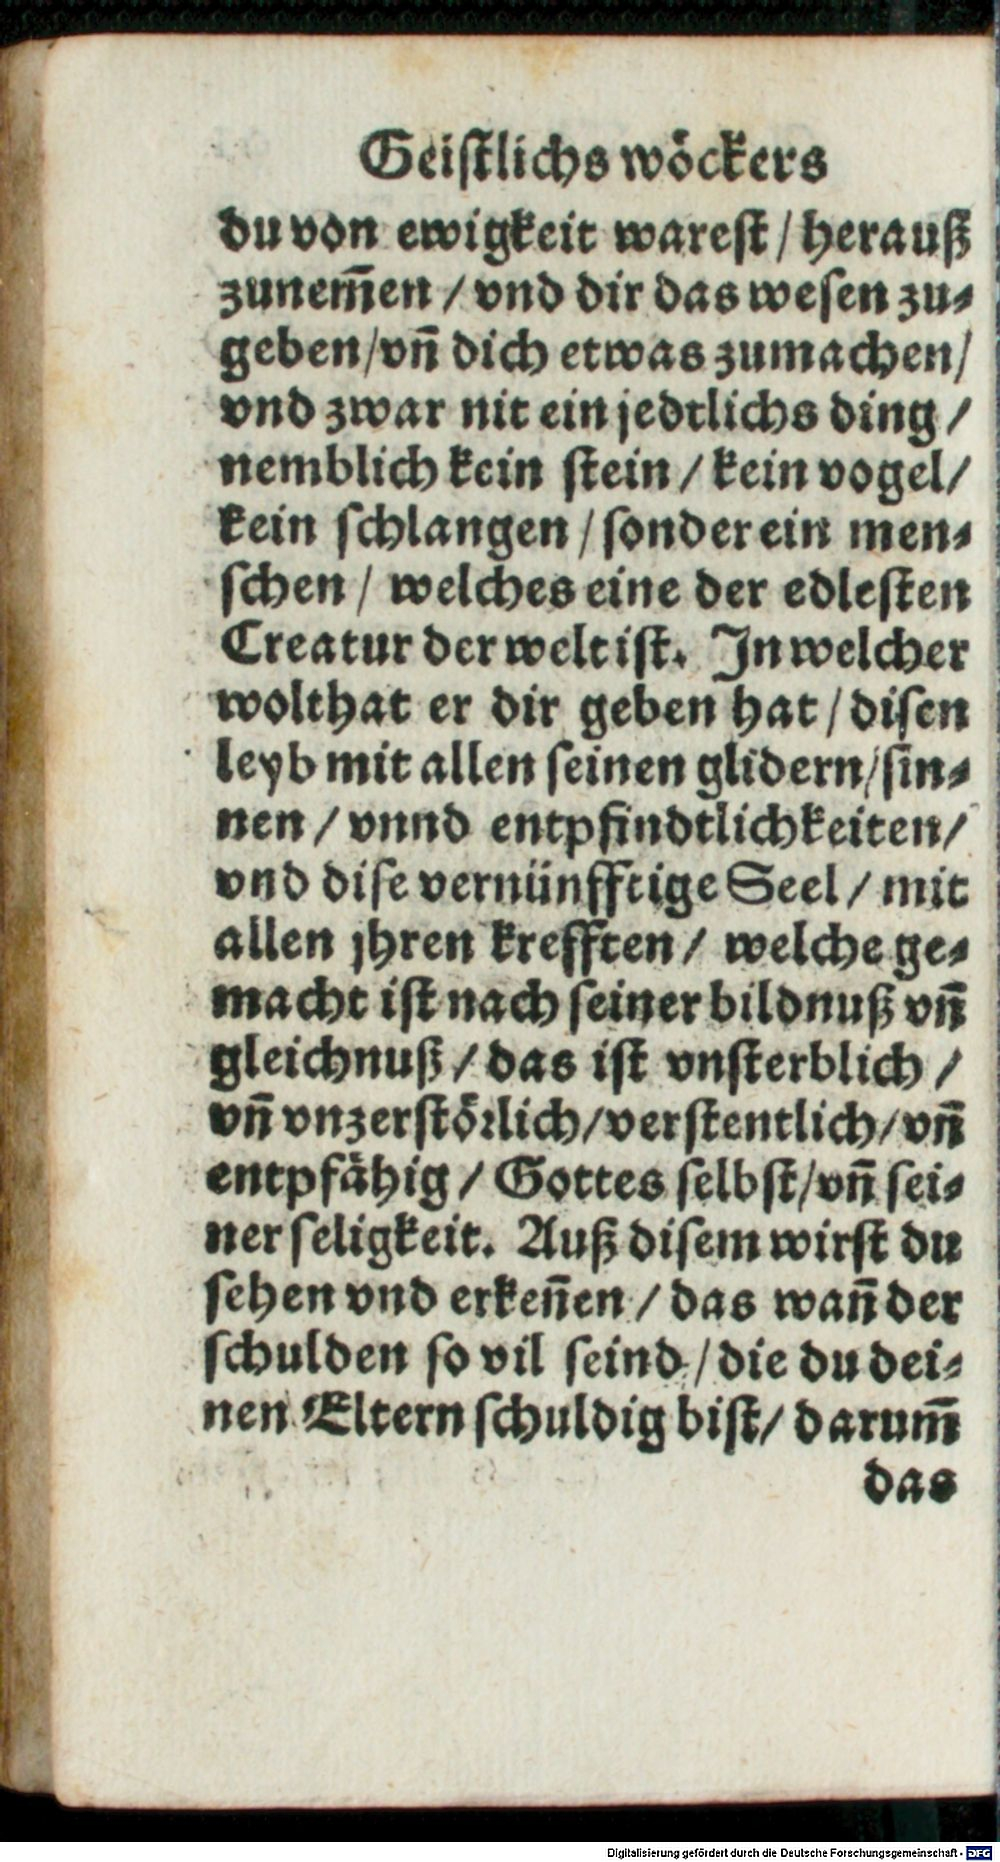 Geistlichs wöckers
du von ewigkeit warest / herauß
zunem̄en / vnd dir das wesen zu-
geben / vn̄ dich etwas zumachen /
vnd zwar nit ein jedtlichs ding /
nemblich kein stein / kein vogel /
kein schlangen / sonder ein men-
schen / welches eine der edlesten
Creatur der welt ist. In welcher
wolthat er dir geben hat / disen
leyb mit allen seinen glidern / sin-
nen / vnnd entpfindtlichkeiten /
vnd dise vernünfftige Seel / mit
allen jhren krefften / welche ge-
macht ist nach seiner bildnuß vn̄
gleichnuß / das ist vnsterblich /
vn̄ vnzerstörlich / verstentlich / vn̄
entpfähig / Gottes selbst / vn̄ sei-
ner seligkeit. Auß disem wirst du
sehen vnd erken̄en / das wan̄ der
schulden so vil seind / die du dei-
nen Eltern schuldig bist / darum̄
das
Digitalisierung gefördert durch die Deutsche Forschungsgemeinschaft - DFG